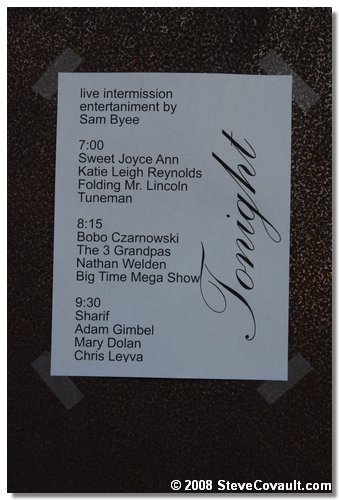 live intermission
entertaniment by
Sam Byee
7:00
Sweet Joyce Ann
Katie Leigh Reynolds
Folding Mr. Lincoln
Tuneman
8:15
Bobo Czarnowski
The 3 Grandpas
Nathan Welden
Big Time Mega Show
9:30
Sharif
Adam Gimbel
Mary Dolan
Chris Leyva
Tonight
© 2008 SteveCovault.com